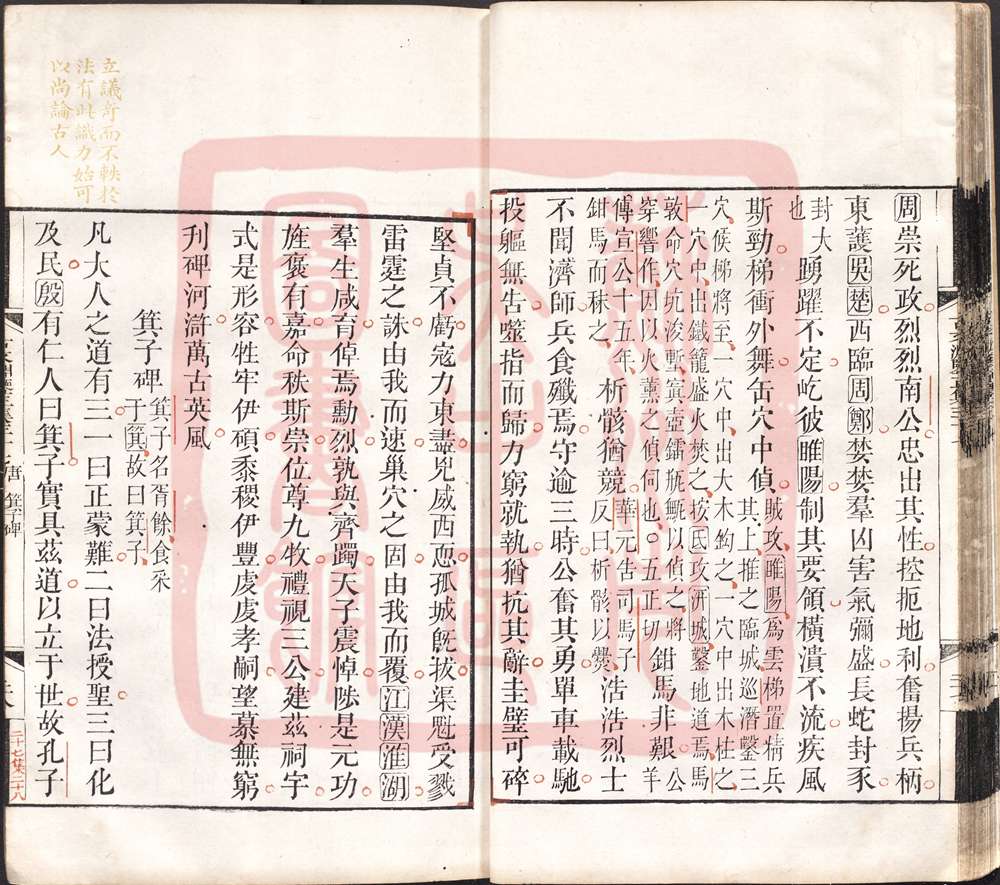 周崇死政烈烈南公忠出其性控扼地利奮揚兵柄
東護吳楚西臨周鄭婪婪羣凶害氣彌盛長蛇封豕
封大也踴躍不定屹彼睢陽制其要領橫潰不流疾風
斯勁梯衝外舞缶穴中偵賊攻睢陽為雲梯置精兵
其上推之臨城巡潛鑿三
穴俟梯將至一穴中出大木鉤之一穴中出木柱之
一穴中出鐵籠盛火焚之按氐攻汧城鑿地道焉馬
敦命穴坑浚塹寘壺鐳瓶甒以偵之將
穿響作因以火薰之偵何也○五正切鉗馬非艱公羊
傳宣公十五年析骸猶競華元告司馬子
鉗馬而秣之反曰析骸以爨浩浩烈士
不聞濟師兵食殲焉守逾三時公奮其勇單車載馳
投軀無告噬指而歸力窮就執猶抗其辭圭璧可碎
堅貞不虧寇力東盡兇威西恧孤城旣拔渠魁受戮
雷霆之誅由我而速巢穴之固由我而覆江漢淮湖
羣生咸育倬焉勳烈孰與齊躅天子震悼陟是元功
旌褒有嘉命秩斯崇位尊九牧禮視三公建茲祠宇
式是形容牲牢伊碩黍稷伊豐虔虔孝嗣望慕無窮
刋碑河滸萬古英風
箕子碑箕子名胥餘食采
于箕故曰箕子
凡大人之道有三一曰正蒙難二曰法授聖三曰化
及民殷有仁人曰箕子實具茲道以立于世故孔子
立議奇而不軼於
法有此識力始可
以尚論古人
唐 箕子碑
二十七集二十八